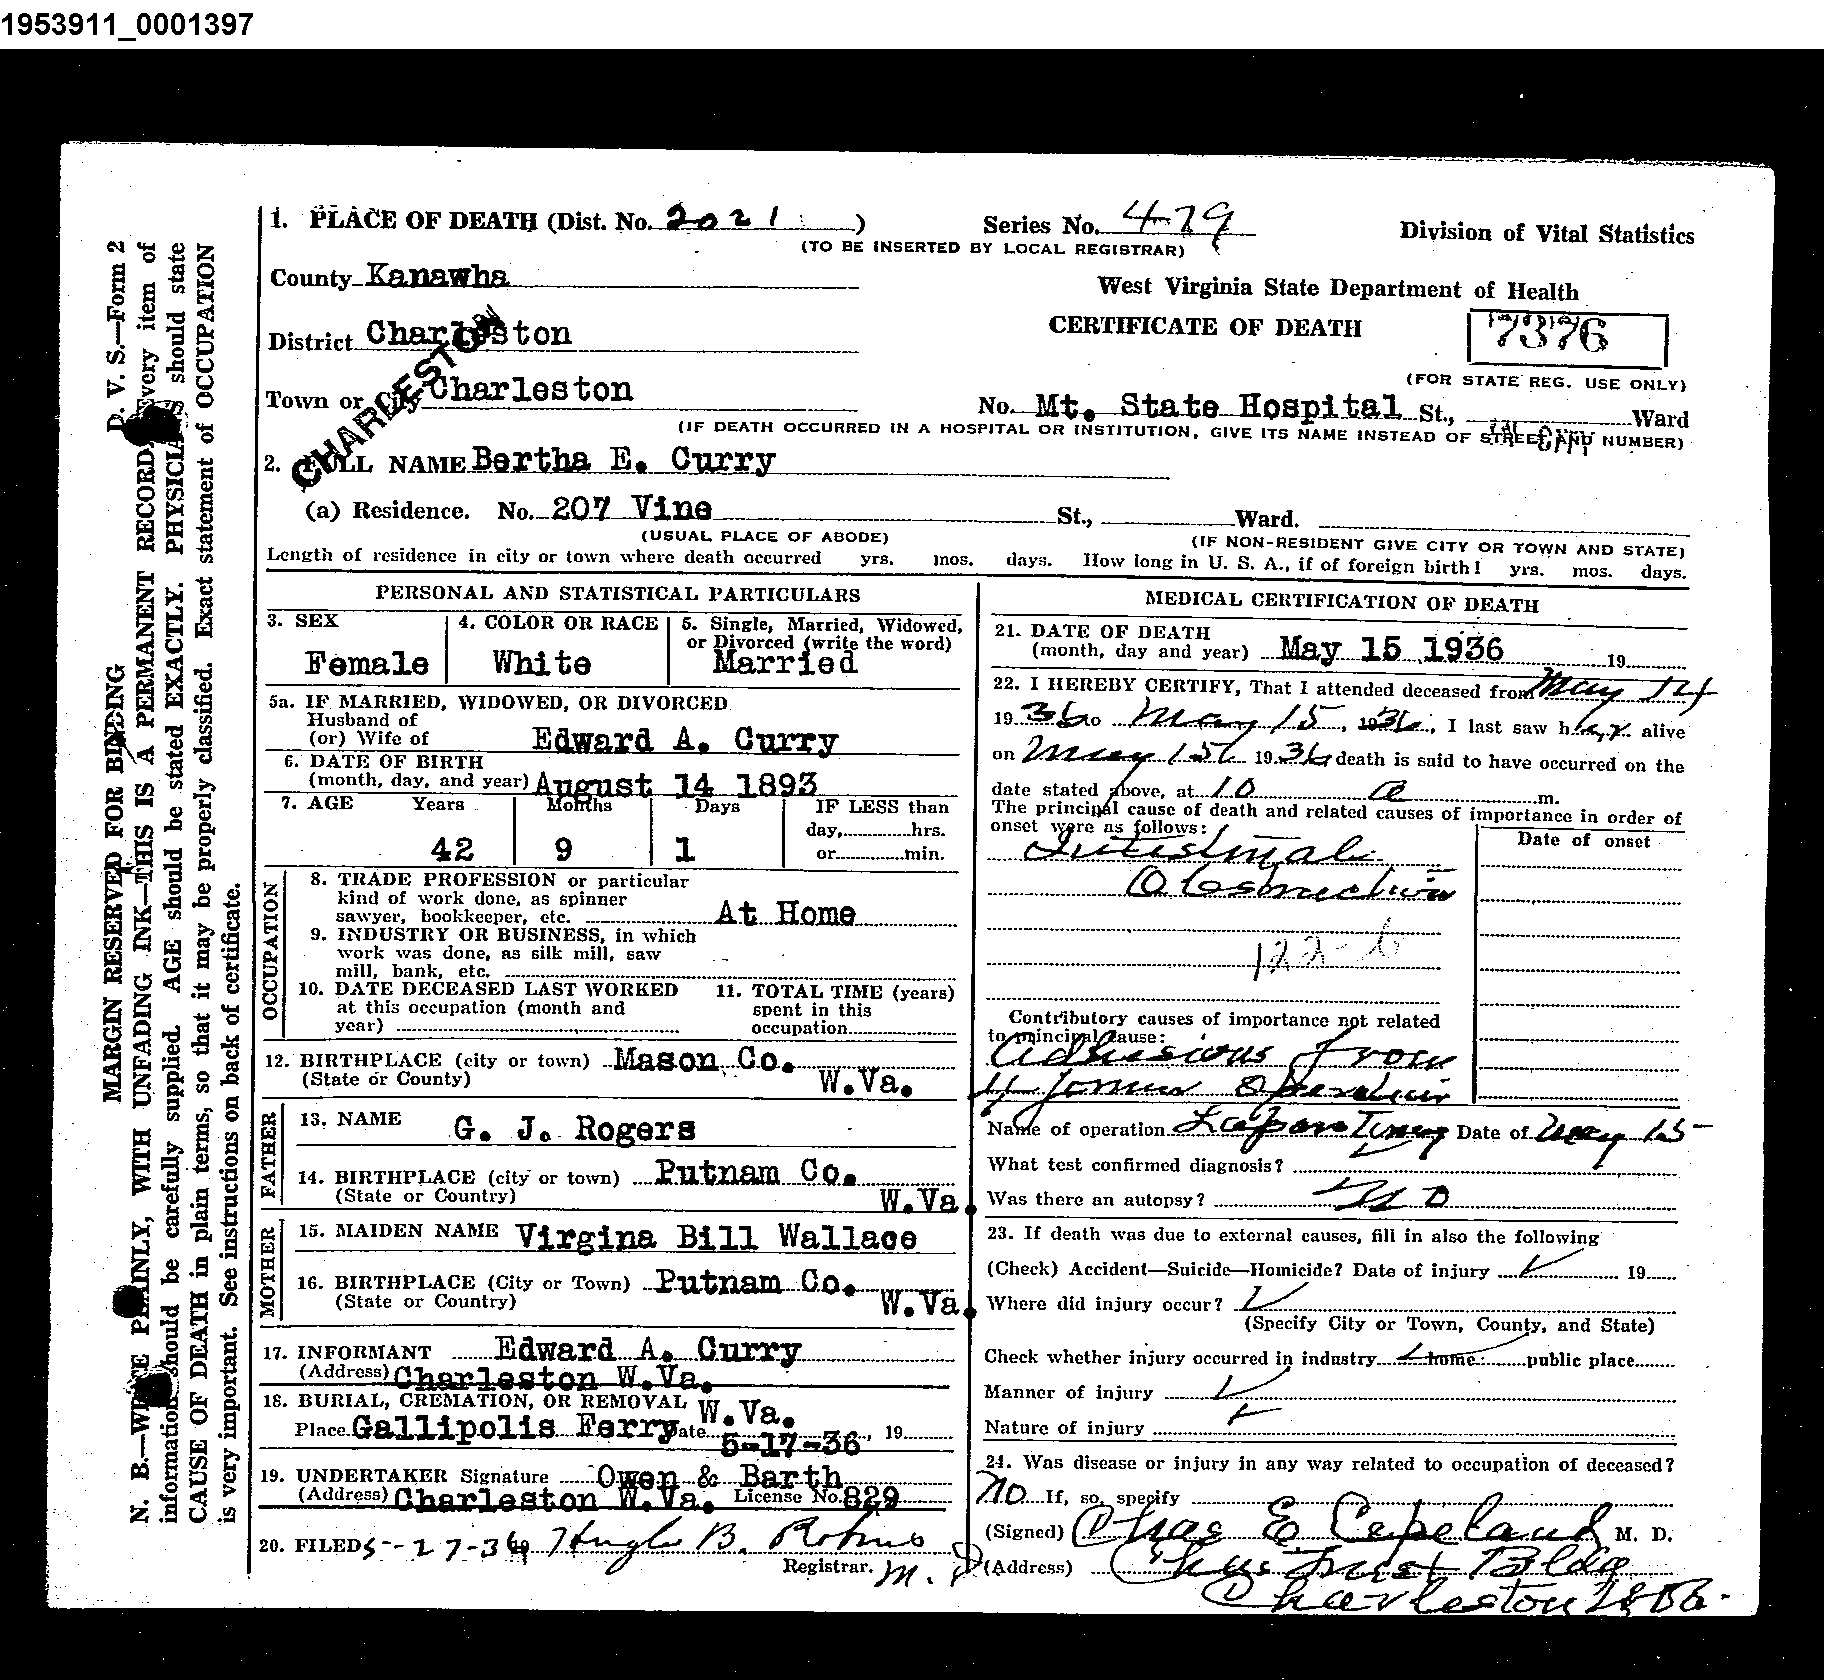 1953911_0001397
1. PLACE OF DEATH (Dist. No. 2021 ) Series No. 479 Division of Vital Statistics
(TO BE INSERTED BY LOCAL REGISTRAR)
County Kanawha
West Virginia State Department of Health
CERTIFICATE OF DEATH 7376
(FOR STATE REG. USE ONLY)
District Charleston
CHARLESTON
Town or City Charleston
No. Mt. State Hospital St., Ward
(IF DEATH OCCURRED IN A HOSPITAL OR INSTITUTION, GIVE ITS NAME INSTEAD OF STREET AND NUMBER)
2. FULL NAME Bertha E. Curry
(a) Residence. No. 207 Vine St., Ward.
(USUAL PLACE OF ABODE) (IF NON-RESIDENT GIVE CITY OR TOWN AND STATE)
Length of residence in city or town where death occurred yrs. mos. days. How long in U. S. A., if of foreign birth! yrs. mos. days.
PERSONAL AND STATISTICAL PARTICULARS
3. SEX
Female
4. COLOR OR RACE
White
5. Single, Married, Widowed,
or Divorced (write the word)
Married
5a. IF MARRIED, WIDOWED, OR DIVORCED
Husband of
(or) Wife of Edward A. Curry
6. DATE OF BIRTH
(month, day, and year) August 14 1893
7. AGE Years Months Days IF LESS than
day, hrs.
42 9 1 or min.
OCCUPATION
8. TRADE PROFESSION or particular
kind of work done, as spinner
sawyer, bookkeeper, etc. At Home
9. INDUSTRY OR BUSINESS, in which
work was done, as silk mill, saw
mill, bank, etc.
10. DATE DECEASED LAST WORKED
at this occupation (month and
year)
11. TOTAL TIME (years)
spent in this
occupation
12. BIRTHPLACE (city or town) Mason Co.
(State or County) W.Va.
FATHER
13. NAME G. J. Rogers
14. BIRTHPLACE (city or town) Putnam Co.
(State or Country) W.Va.
MOTHER
15. MAIDEN NAME Virgina Bill Wallace
16. BIRTHPLACE (City or Town) Putnam Co.
(State or Country) W.Va.
17. INFORMANT Edward A. Curry
(Address) Charleston W.Va.
18. BURIAL, CREMATION, OR REMOVAL W.Va.
Place Gallipolis Ferry Date 5-17-36, 19
19. UNDERTAKER Signature Owen & Barth
(Address) Charleston W.Va. License No. 829
20. FILED 5-27-36 19 Hugh B. Robins
Registrar. M. D
MEDICAL CERTIFICATION OF DEATH
21. DATE OF DEATH
(month, day and year) May 15 1936 19
22. I HEREBY CERTIFY, That I attended deceased from May 14
1936 to May 15, 1936, I last saw her alive
on May 15, 1936 death is said to have occurred on the
date stated above, at 10 a m.
The principal cause of death and related causes of importance in order of
onset were as follows:
Date of onset
Intestinal
Obstruction
122-b
Contributory causes of importance not related
to principal cause:
Adhesions from
4 former Operation
Name of operation Laparotomy Date of May 15
What test confirmed diagnosis?
Was there an autopsy? No
23. If death was due to external causes, fill in also the following
(Check) Accident—Suicide—Homicide? Date of injury 19
Where did injury occur?
(Specify City or Town, County, and State)
Check whether injury occurred in industry home public place
Manner of injury
Nature of injury
24. Was disease or injury in any way related to occupation of deceased?
No If, so, specify
(Signed) Chas E Copeland M. D.
(Address) Chas Trust Bldg
Charleston W Va.
D. V. S.—Form 2
MARGIN RESERVED FOR BINDING
N. B.—WRITE PLAINLY, WITH UNFADING INK—THIS IS A PERMANENT RECORD. Every item of
information should be carefully supplied. AGE should be stated EXACTLY. PHYSICIANS should state
CAUSE OF DEATH in plain terms, so that it may be properly classified. Exact statement of OCCUPATION
is very important. See instructions on back of certificate.